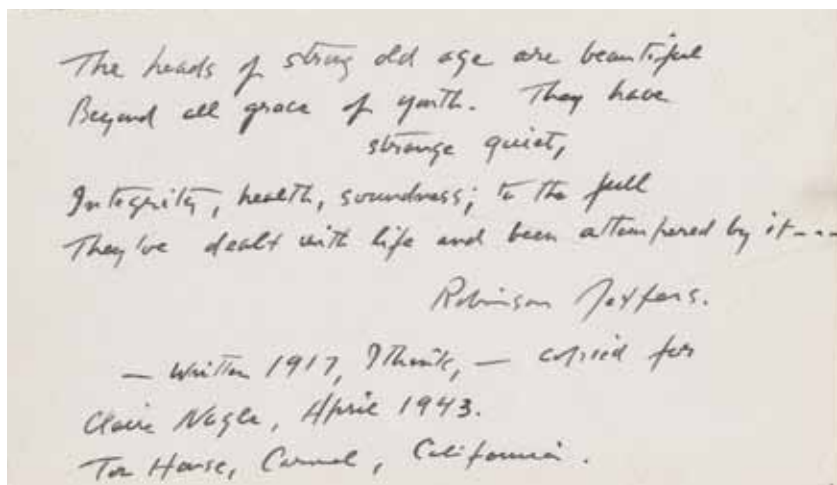 The heads of strong old age are beautiful
Beyond all grace of youth. They have
strange quiet,
Integrity, health, soundness; to the full
They've dealt with life and been attempered by it---
Robinson Jeffers.
— Written 1917, I think, — copied for
Claire Nagle, April 1943.
Tor House, Carmel, California.